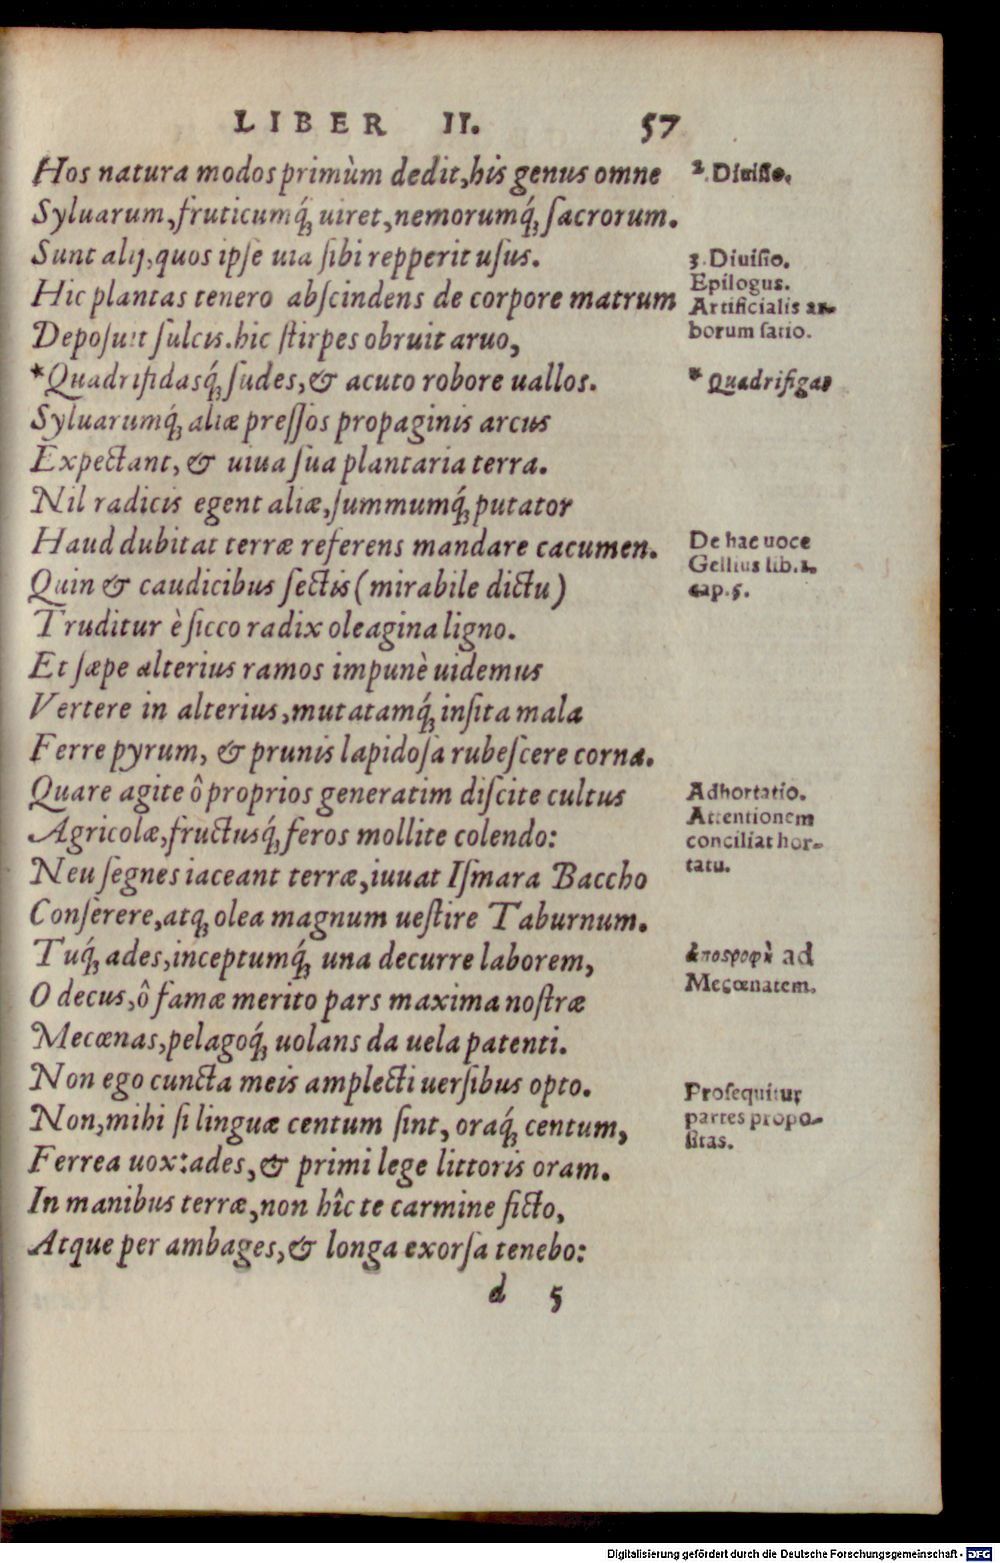 LIBER II. 57
Hos natura modos primùm dedit, his genus omne
Syluarum, fruticumq́; uiret, nemorumq́; sacrorum.
Sunt alij, quos ipse uia sibi repperit usus.
Hic plantas tenero abscindens de corpore matrum
Deposuit sulcis. hic stirpes obruit aruo,
*Quadrifidasq́; sudes, & acuto robore uallos.
Syluarumq́; aliæ pressos propaginis arcus
Expectant, & uiua sua plantaria terra.
Nil radicis egent aliæ, summumq́; putator
Haud dubitat terræ referens mandare cacumen.
Quin & caudicibus sectis (mirabile dictu)
Truditur è sicco radix oleagina ligno.
Et sæpe alterius ramos impunè uidemus
Vertere in alterius, mutatamq́; insita mala
Ferre pyrum, & prunis lapidosa rubescere corna.
Quare agite ô proprios generatim discite cultus
Agricolæ, fructusq́; feros mollite colendo:
Neu segnes iaceant terræ, iuuat Ismara Baccho
Conserere, atq; olea magnum uestire Taburnum.
Tuq́; ades, inceptumq́; una decurre laborem,
O decus, ô famæ merito pars maxima nostræ
Mecœnas, pelagoq́; uolans da uela patenti.
Non ego cuncta meis amplecti uersibus opto.
Non, mihi si linguæ centum sint, oraq́; centum,
Ferrea uox: ades, & primi lege littoris oram.
In manibus terræ, non hîc te carmine ficto,
Atque per ambages, & longa exorsa tenebo:
d 5
2. Diuisio.
3. Diuisio.
Epilogus.
Artificialis ar-
borum satio.
* Quadrifigas
De hac uoce
Gellius lib.2.
cap.5.
Adhortatio.
Attentionem
conciliat hor-
tatu.
ἀποστροφὴ ad
Mecœnatem.
Prosequitur
partes propo-
sitas.
Digitalisierung gefördert durch die Deutsche Forschungsgemeinschaft - DFG